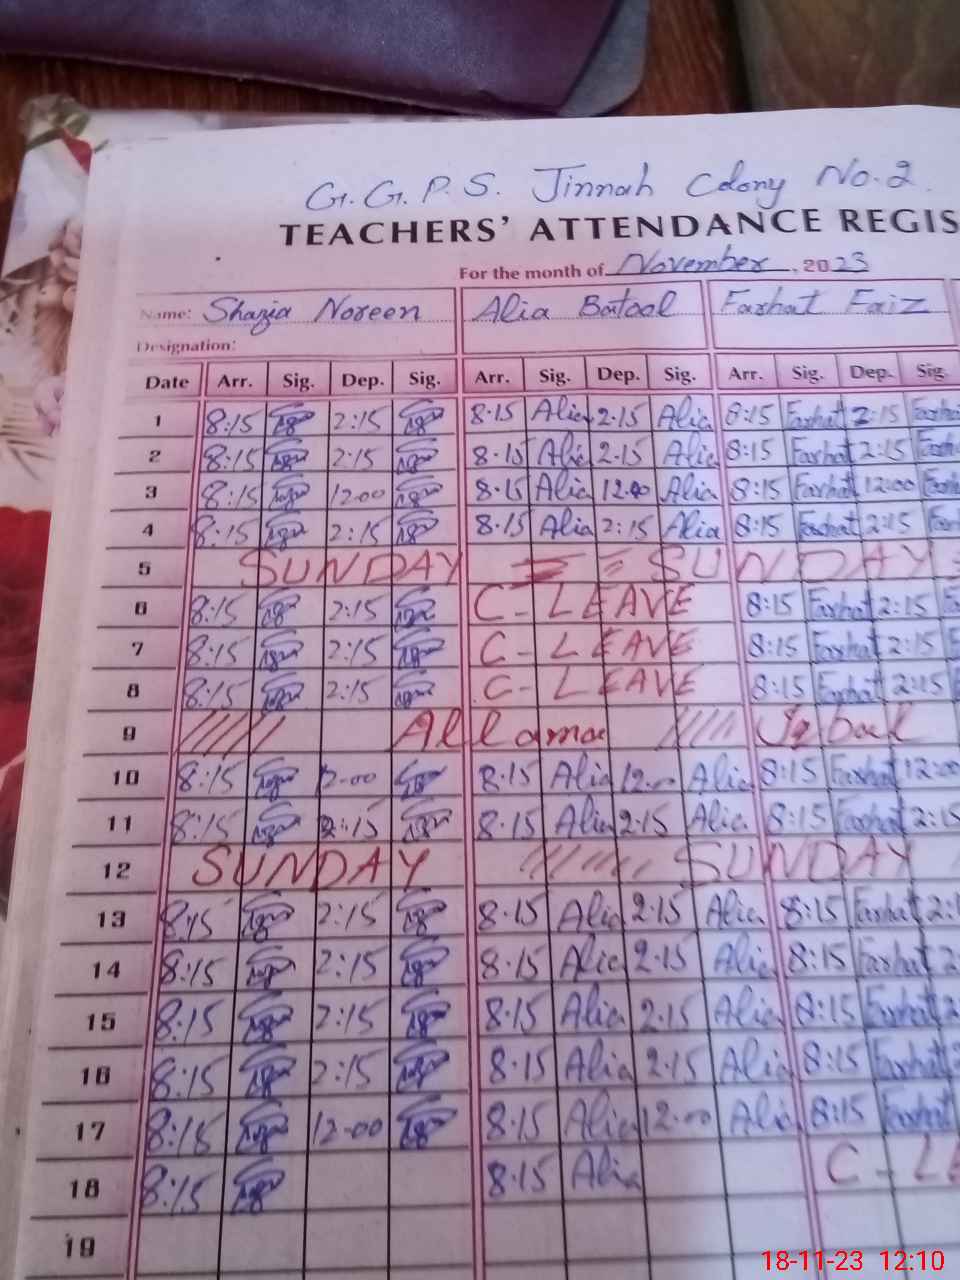 G.G.P.S. Jinnah Colony No.2
TEACHERS' ATTENDANCE REGIS
For the month of November, 2023
Name: Shazia Noreen Alia Batool Farhat Faiz
Designation:
Date Arr. Sig. Dep. Sig. Arr. Sig. Dep. Sig. Arr. Sig. Dep. Sig.
1 8:15 2:15 8.15 Alia 2.15 Alia 8:15 Farhat 2:15 Farhat
2 8:15 2:15 8.15 Alia 2.15 Alia 8:15 Farhat 2:15 Farhat
3 8:15 12.00 8.15 Alia 12.00 Alia 8:15 Farhat 12:00 Farhat
4 8:15 2:15 8.15 Alia 2:15 Alia 8:15 Farhat 2:15 Far
5 SUNDAY SUNDAY
6 8:15 2:15 C-LEAVE 8:15 Farhat 2:15 F
7 8:15 2:15 C-LEAVE 8:15 Farhat 2:15 F
8 8:15 2:15 C-LEAVE 8:15 Farhat 2:15
9 Allama Iqbal
10 8:15 12-00 8.15 Alia 12.00 Alia 8:15 Farhat 12:00
11 8:15 2:15 8.15 Alia 2.15 Alia 8:15 Farhat 2:15
12 SUNDAY SUNDAY
13 8:15 2:15 8.15 Alia 2.15 Alia 8:15 Farhat 2:1
14 8:15 2:15 8.15 Alia 2.15 Alia 8:15 Farhat 2
15 8:15 2:15 8.15 Alia 2.15 Alia 8:15 Farhat 2
16 8:15 2:15 8.15 Alia 2.15 Alia 8:15 Farhat 2
17 8:15 12-00 8.15 Alia 12.00 Alia 8:15 Farhat
18 8:15 8.15 Alia C-LE
19
18-11-23 12:10